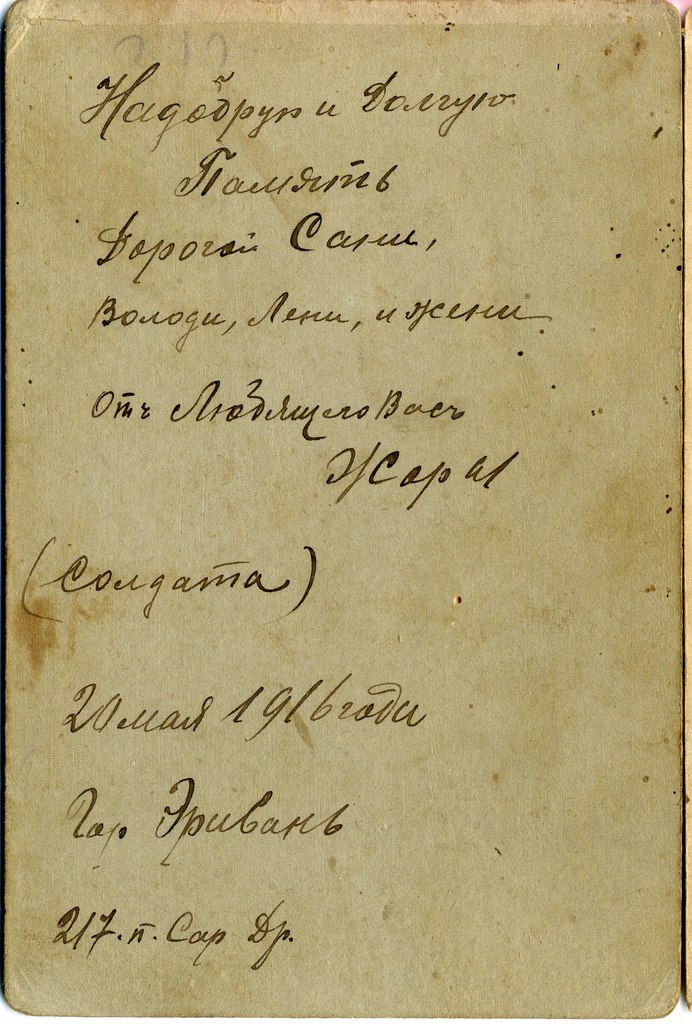 Надобрую и Долгую
Память
Дорогой Сани,
Володи, Лени, и жени
Отъ Любящего Васъ
Жоры
(Солдата)
20 мая 1916 года
Гор Эривань
217. п. Сар Др.